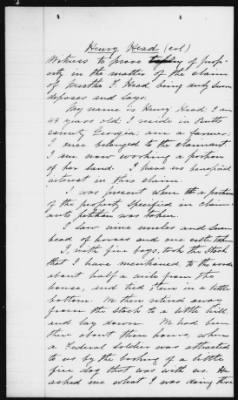 Henry Head (col)
Witness to prove of prop-
erty in the matter of the claim
of Martha T. Head being duly sworn
deposes and says.
My name is Henry Head I am
years old. I reside in Butts
county Georgia. am a farmer.
I once belonged to the claimant
I am now working a portion
of her land. I have no beneficial
interest in this claim.
I was present when a portion
of the property specified in claim-
ants petition was taken.
I saw nine mules and some
head of horses and one
I with five boys, took the stock
that I have mentioned to the woods
about half a mile from the
house, and tied them in a little
bottom. We then retired away
from the stock to a little hill
and lay down. We had been
there about three hours, when
a Federal Soldier was attracted
to us by the barking of a little
fice dog that was with us. He
asked me what I was doing there